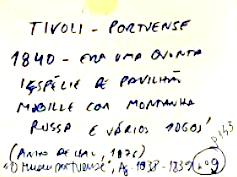 TIVOLI - PORTUENSE
1840 - ERA UMA QUINTA
ESPÉCIE DE PAVILHÃO
MABILLE COM MONTANHA
RUSSA E VÁRIOS JOGOS
(ANTº DE 1876)
"O MUSEU PORTUENSE", Ag. 1838-1839, nº 9
p 143